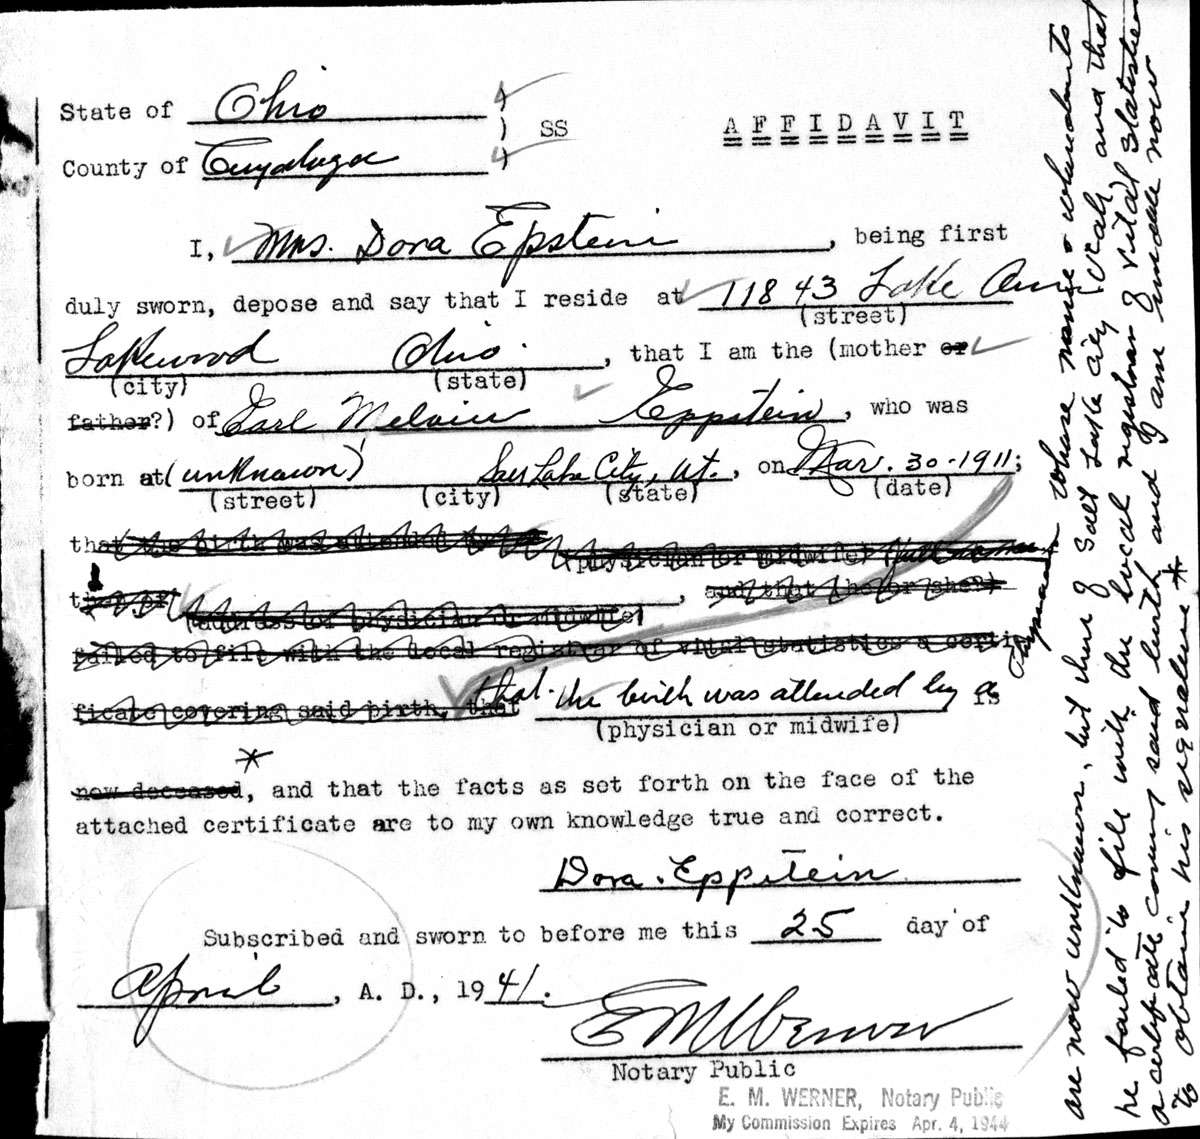 State of Ohio )
) SS A F F I D A V I T
County of Cuyahoga )
I, Mrs. Dora Epstein, being first
duly sworn, depose and say that I reside at 11843 Lake Ave.
(street)
Lakewood Ohio, that I am the (mother or
(city) (state)
father?) of Earl Melvin Eppstein, who was
born at (unknown) Salt Lake City, Ut., on Mar. 30-1911;
(street) (city) (state) (date)
that the birth was attended by
(physician or midwife)
, and that (he or she?)
(address of physician or midwife)
failed to file with the local registrar of vital statistics a certi
ficate covering said birth, that that the birth was attended by a is
(physician or midwife)
*
now deceased, and that the facts as set forth on the face of the
attached certificate are to my own knowledge true and correct.
Dora Eppstein
Subscribed and sworn to before me this 25 day of
April, A. D., 1941.
E M Werner
Notary Public
E. M. WERNER, Notary Public
My Commission Expires Apr. 4, 1944
physician whose name & whereabouts
are now unknown, but then of Salt Lake City Utah, and that
he failed to file with the local registrar of vital statistics
a certificate covering said birth and I am unable now
to obtain his signature *